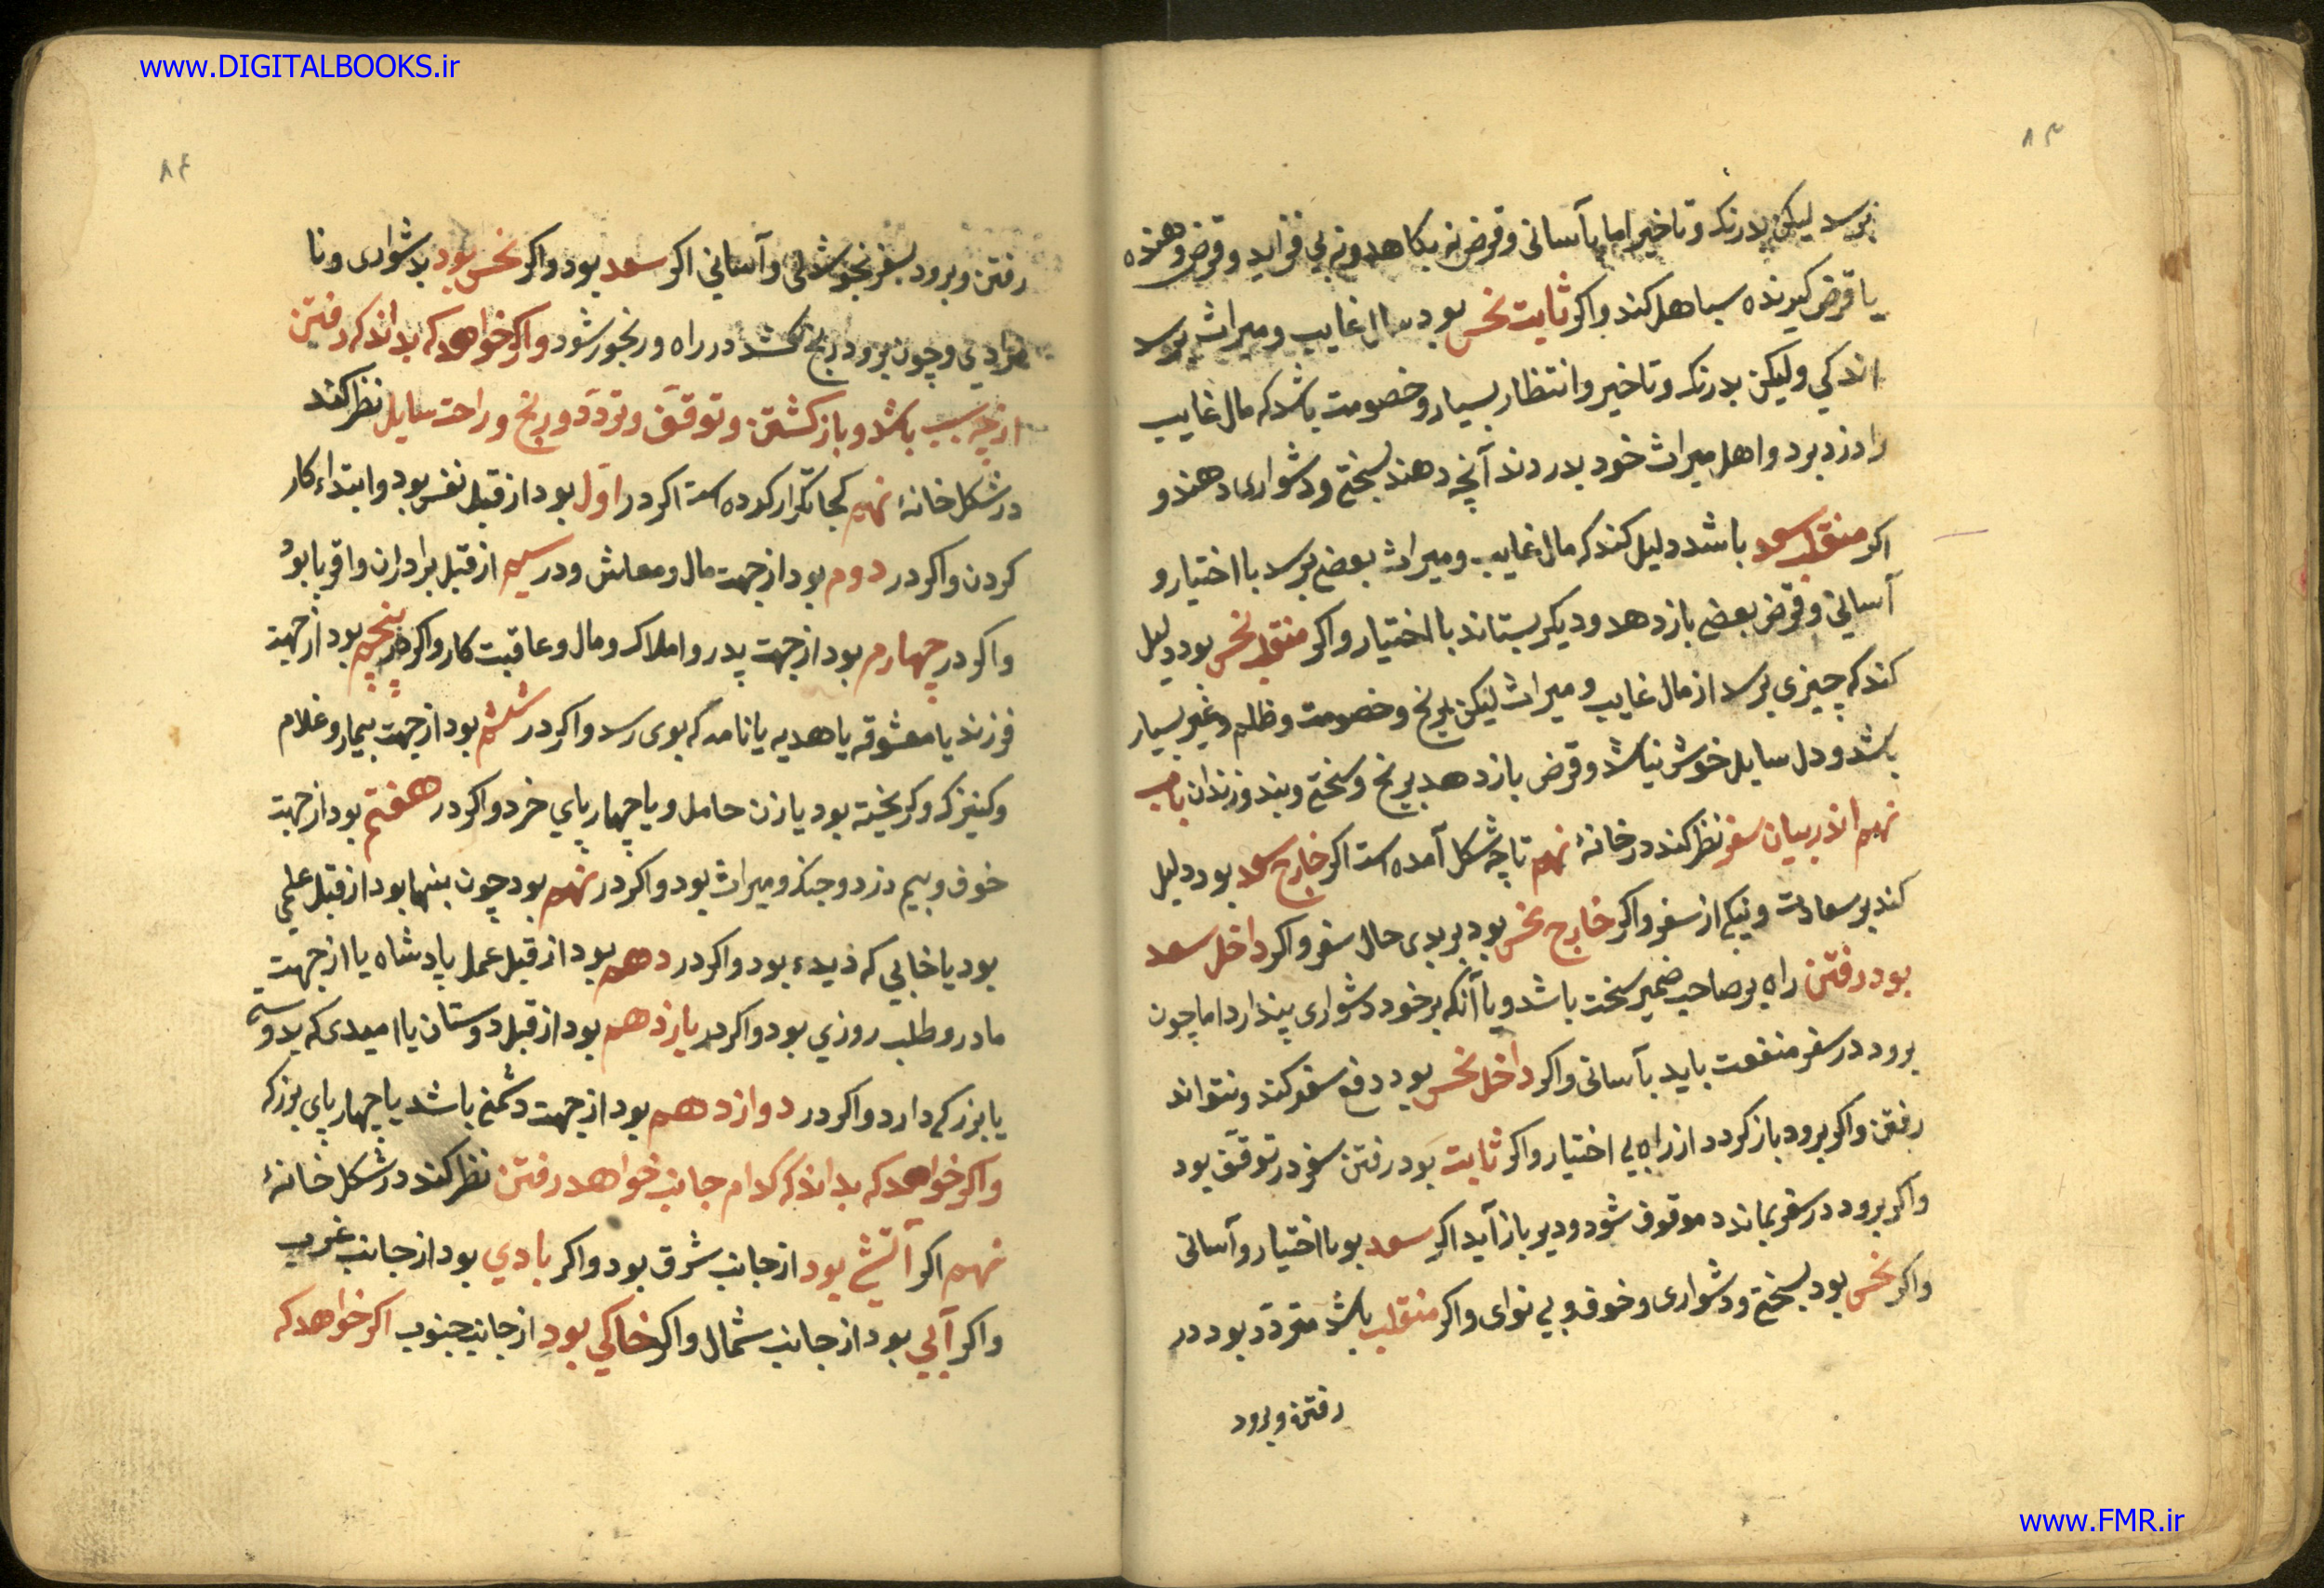 www.DIGITALBOOKS.ir
۸۳
برسد لیکن بدرنک و تاخیر اما بآسانی و قرض نه بکاهد و نه بی فزاید و قرض دهنده
یا قرض کیرنده سباهل کند و اکر ثابت نحس بود مال غایب و میراث برسد
اندکی ولیکن بدرنک و تاخیر و انتظار بسیار و خصومت باشد که مال غایب
را دزد برد و اهل میراث خود بدردند آنچه دهند بسختی و دشواری دهند و
اکر منقلب سعد باشد دلیل کند که مال غایب و میراث بعضی برسد با اختیار و
آسانی و قرض بعضی باز دهد و دیکر بستاند با اختیار و اکر منقلب نحس بود دلیل
کند که چیزی برسد از مال غایب و میراث لیکن برنج و خصومت و ظلم و غیر بسیار
باشد و دل سایل خوش نباشد و قرض باز دهد برنج و سختی و بند و زندان باب
نهم اندر بیان سفر نظر کند در خانهٔ نهم تا چه شکل آمده است اکر خارج سعد بود دلیل
کند بر سعادت و نیکی از سفر و اکر خارج نحس بود بر بدی حال سفر و اکر داخل سعد
بود رفتن راه بر صاحب ضمیر سخت باشد و یا آنکه بر خود دشواری پندارد اما چون
برود در سفر منفعت یابد بآسانی و اکر داخل نحس بود دفع سفر کند و نتواند
رفتن و اکر برود باز کردد از راه بی اختیار و اکر ثابت بود رفتن سفر در توقّف بود
و اکر برود در سفر بماند و موقوف شود و دیر باز آید اکر سعد بود با اختیار و آسانی
و اکر نحس بود بسختی و دشواری و خوف و بی نوای و اکر منقلب باشد متردّد بود در
رفتن و برود
۸۴
رفتن و برود بسفر بخوشدلی و آسانی اکر سعد بود و اکر نحس بود بدشواری و نا
مرادی و چون برود رنج کشد در راه و رنجور شود و اکر خواهد که بداند که رفتن
از چه سبب باشد و باز کشتن و توقّف و تردّد و رنج و راحت سایل نظر کند
در شکل خانهٔ نهم کجا تکرار کرده است اکر در اوّل بود از قبل نفس بود و ابتداء کار
کردن و اکر در دوم بود از جهت مال و معاش و در سیم از قبل برادران و اقربا بود
و اکر در چهارم بود از جهت پدر و املاک و مال و عاقبت کار و اکر در پنجم بود از جهت
فرزند یا معشوقه یا هدیه یا نامه که بوی رسد و اکر در ششم بود از جهت بیمار و غلام
و کنیزک و کریخته بود یا زن حامل و یا چهارپای خرد و اکر در هفتم بود از جهت
خوف و بیم دزد و جنک و میراث بود و اکر در نهم بود چون بنهها بود از قبل علمی
بود یا خابی که دیده بود و اکر در دهم بود از قبل عمل پادشاه یا از جهت
مادر و طلب روزی بود و اکر در یازدهم بود از قبل دوستان یا امیدی که بدوستی
یا بزرکی دارد و اکر در دوازدهم بود از جهت دشمنی باشد یا چهارپای بزرک
و اکر خواهد که بداند که کدام جانب خواهد رفتن نظر کند در شکل خانهٔ
نهم اکر آتشی بود از جانب شرق بود و اکر بادی بود از جانب غرب
و اکر آبی بود از جانب شمال و اکر خاکی بود از جانب جنوب اکر خواهد که
www.FMR.ir